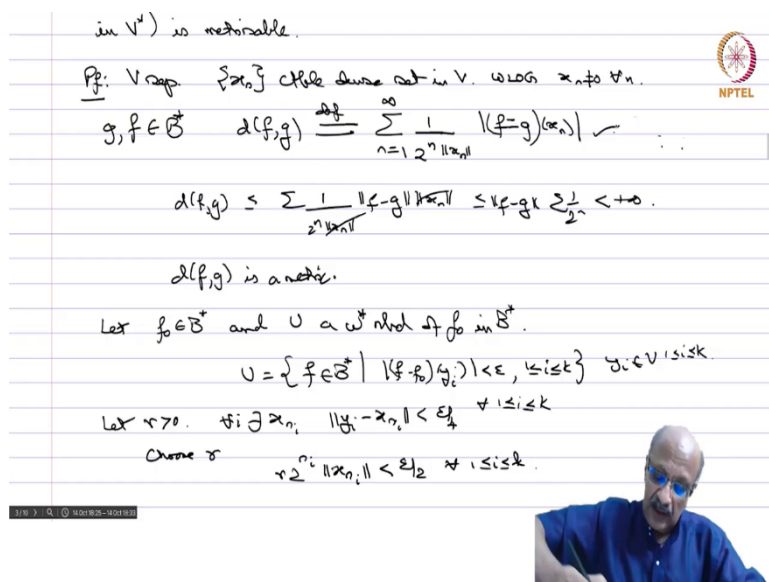 in V*) is metrisable.
Pf: V sep. {xₙ} ctble dense set in V. WLOG xₙ≠0 ∀n.
NPTEL
g, f ∈ B* d(f,g) def= ∞ Σ n=1 1/(2ⁿ ‖xₙ‖) |(f-g)(xₙ)| ✓
d(f,g) ≤ Σ 1/(2ⁿ ‖xₙ‖) ‖f-g‖ ‖xₙ‖ ≤ ‖f-g‖ Σ 1/2ⁿ < +∞.
d(f,g) is a metric.
Let f₀ ∈ B* and U a w* nbd of f₀ in B*.
U = { f ∈ B* | |(f-f₀)(yᵢ)| < ε, 1≤i≤k } yᵢ ∈ V 1≤i≤k.
Let r>0. ∀i ∃ xₙᵢ ‖yᵢ - xₙᵢ‖ < ε/4 ∀ 1≤i≤k
Choose r r2ⁿⁱ ‖xₙᵢ‖ < ε/2 ∀ 1≤i≤k.
3/10 14 Oct 18:25 - 14 Oct 19:33